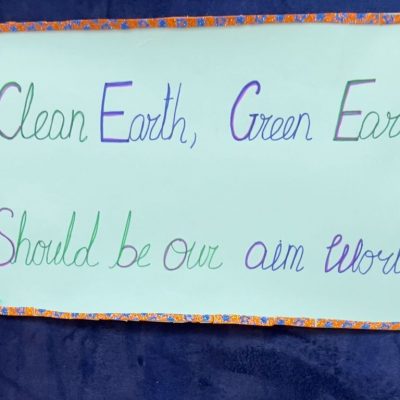 Clean Earth, Green Ear
Should be our aim Worl